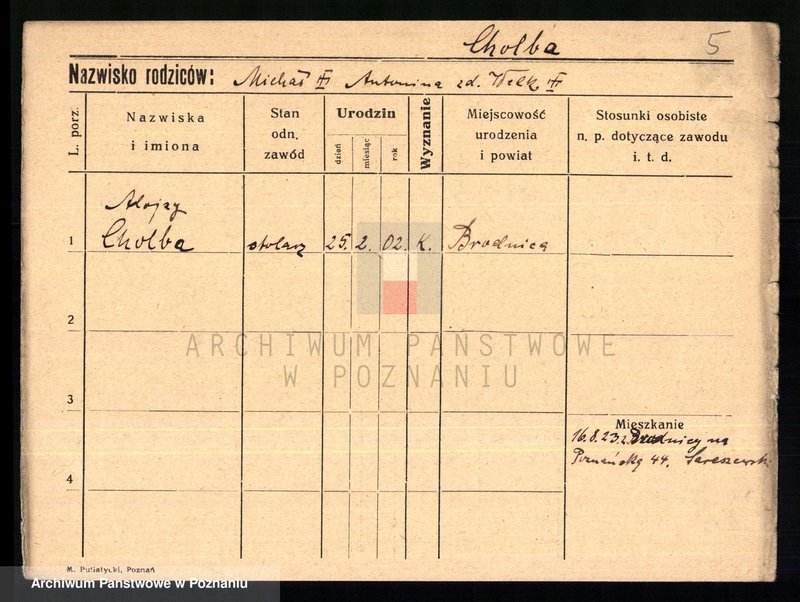 Cholba 5
Nazwisko rodziców: Michał Antonina zd. Welk
L. porz.
Nazwiska i imiona
Stan odn. zawód
Urodzin
dzień
miesiąc
rok
Wyznanie
Miejscowość urodzenia i powiat
Stosunki osobiste n. p. dotyczące zawodu i. t. d.
Alojzy
1 Cholba stolarz 25. 2. 02. K. Brodnica
2
3
Mieszkanie
16.8.23 z Brodnicy na
Poznańską 44.
4
M. Putiatycki, Poznań
ARCHIWUM PAŃSTWOWE
W POZNANIU
Archiwum Państwowe w Poznaniu